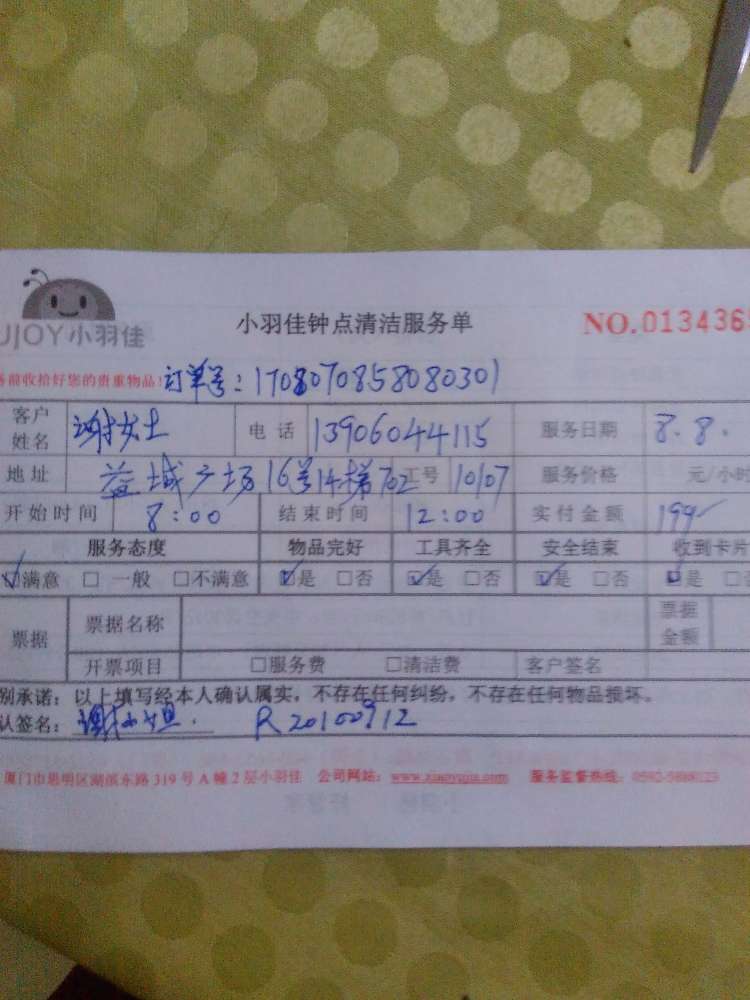 UJOY小羽佳
小羽佳钟点清洁服务单
NO.0134365
前收拾好您的贵重物品! 订单号:170807085808030​1
客户姓名 谢女士 电话 13906044115 服务日期 8.8.
地址 益城广场16号14梯702 工号 10107 服务价格 元/小时
开始时间 8:00 结束时间 12:00 实付金额 199
服务态度 物品完好 工具齐全 安全结束 收到卡片
☑满意 □一般 □不满意 ☑是 □否 ☑是 □否 ☑是 □否 ☑是 □
票据 票据名称 票据金额
开票项目 □服务费 □清洁费 客户签名
别承诺:以上填写经本人确认属实,不存在任何纠纷,不存在任何物品损坏。
认签名: R20100912
厦门市思明区湖滨东路319号A幢2层小羽佳 公司网站:www.xiaoyujia.com 服务监督热线: